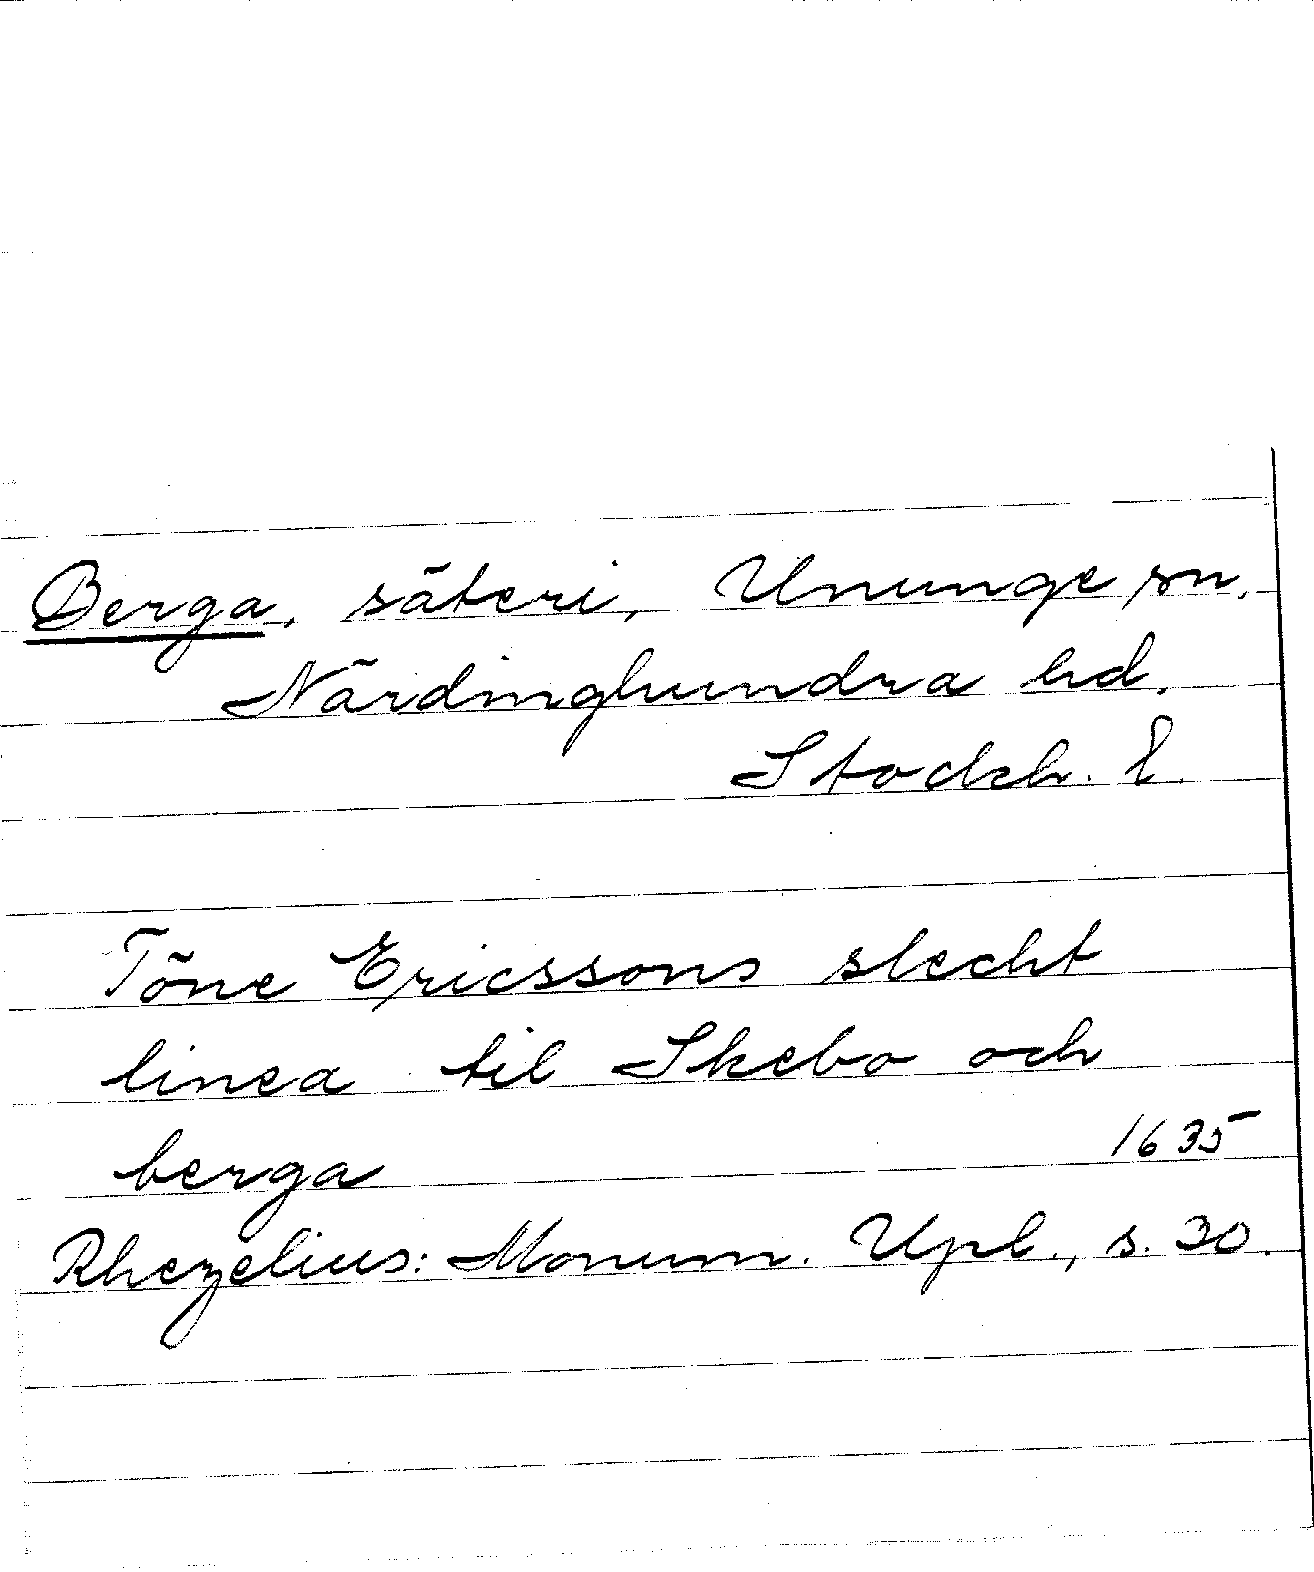 Berga, säteri, Ununge sn.
Närdinghundra hd.
Stockh. l.
Töne Ericssons slecht
linea til Skebo och
berga 1635
Rhezelius: Monum. Upl., s. 30.